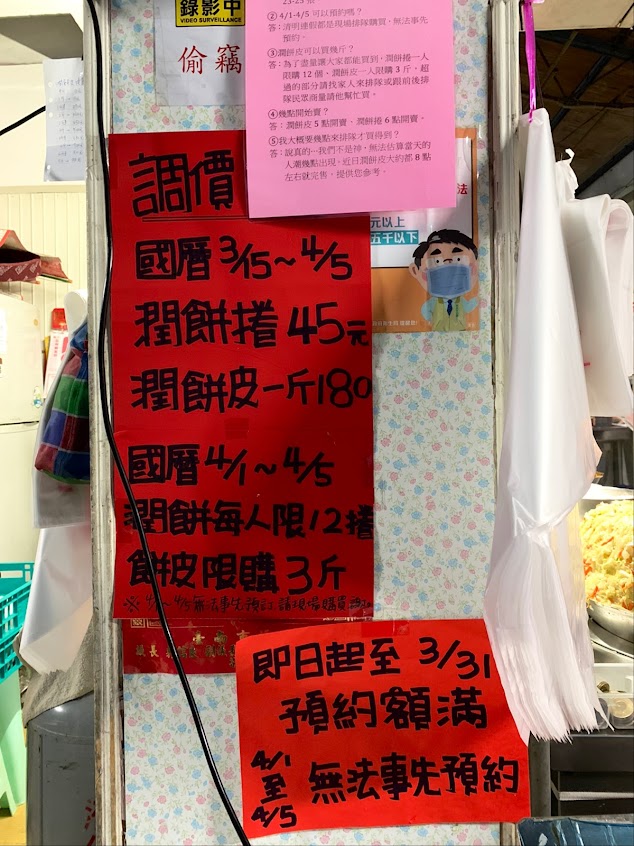 錄影中
VIDEO SURVEILLANCE
偷竊
②4/1-4/5 可以預約嗎?
答:清明連假都是現場排隊購買,無法事先
預約。
③潤餅皮可以買幾斤?
答:為了盡量讓大家都能買到,潤餅捲一人
限購 12 個,潤餅皮一人限購 3 斤,超
過的部分請找家人來排隊或跟前後排
隊民眾商量請他幫忙買。
④幾點開始賣?
答:潤餅皮 5 點開賣、潤餅捲 6 點開賣。
⑤我大概要幾點來排隊才買得到?
答:說真的…我們不是神,無法估算當天的
人潮幾點出現。近日潤餅皮大約都 8 點
左右就完售,提供您參考。
法
元以上
五千以下
調價
國曆 3/15~4/5
潤餅捲 45元
潤餅皮一斤180
國曆 4/1~4/5
潤餅每人限12捲
餅皮限購3斤
※ 4/1~4/5無法事先預訂,請現場購買
即日起至 3/31
預約額滿
4/1
至
4/5
無法事先預約